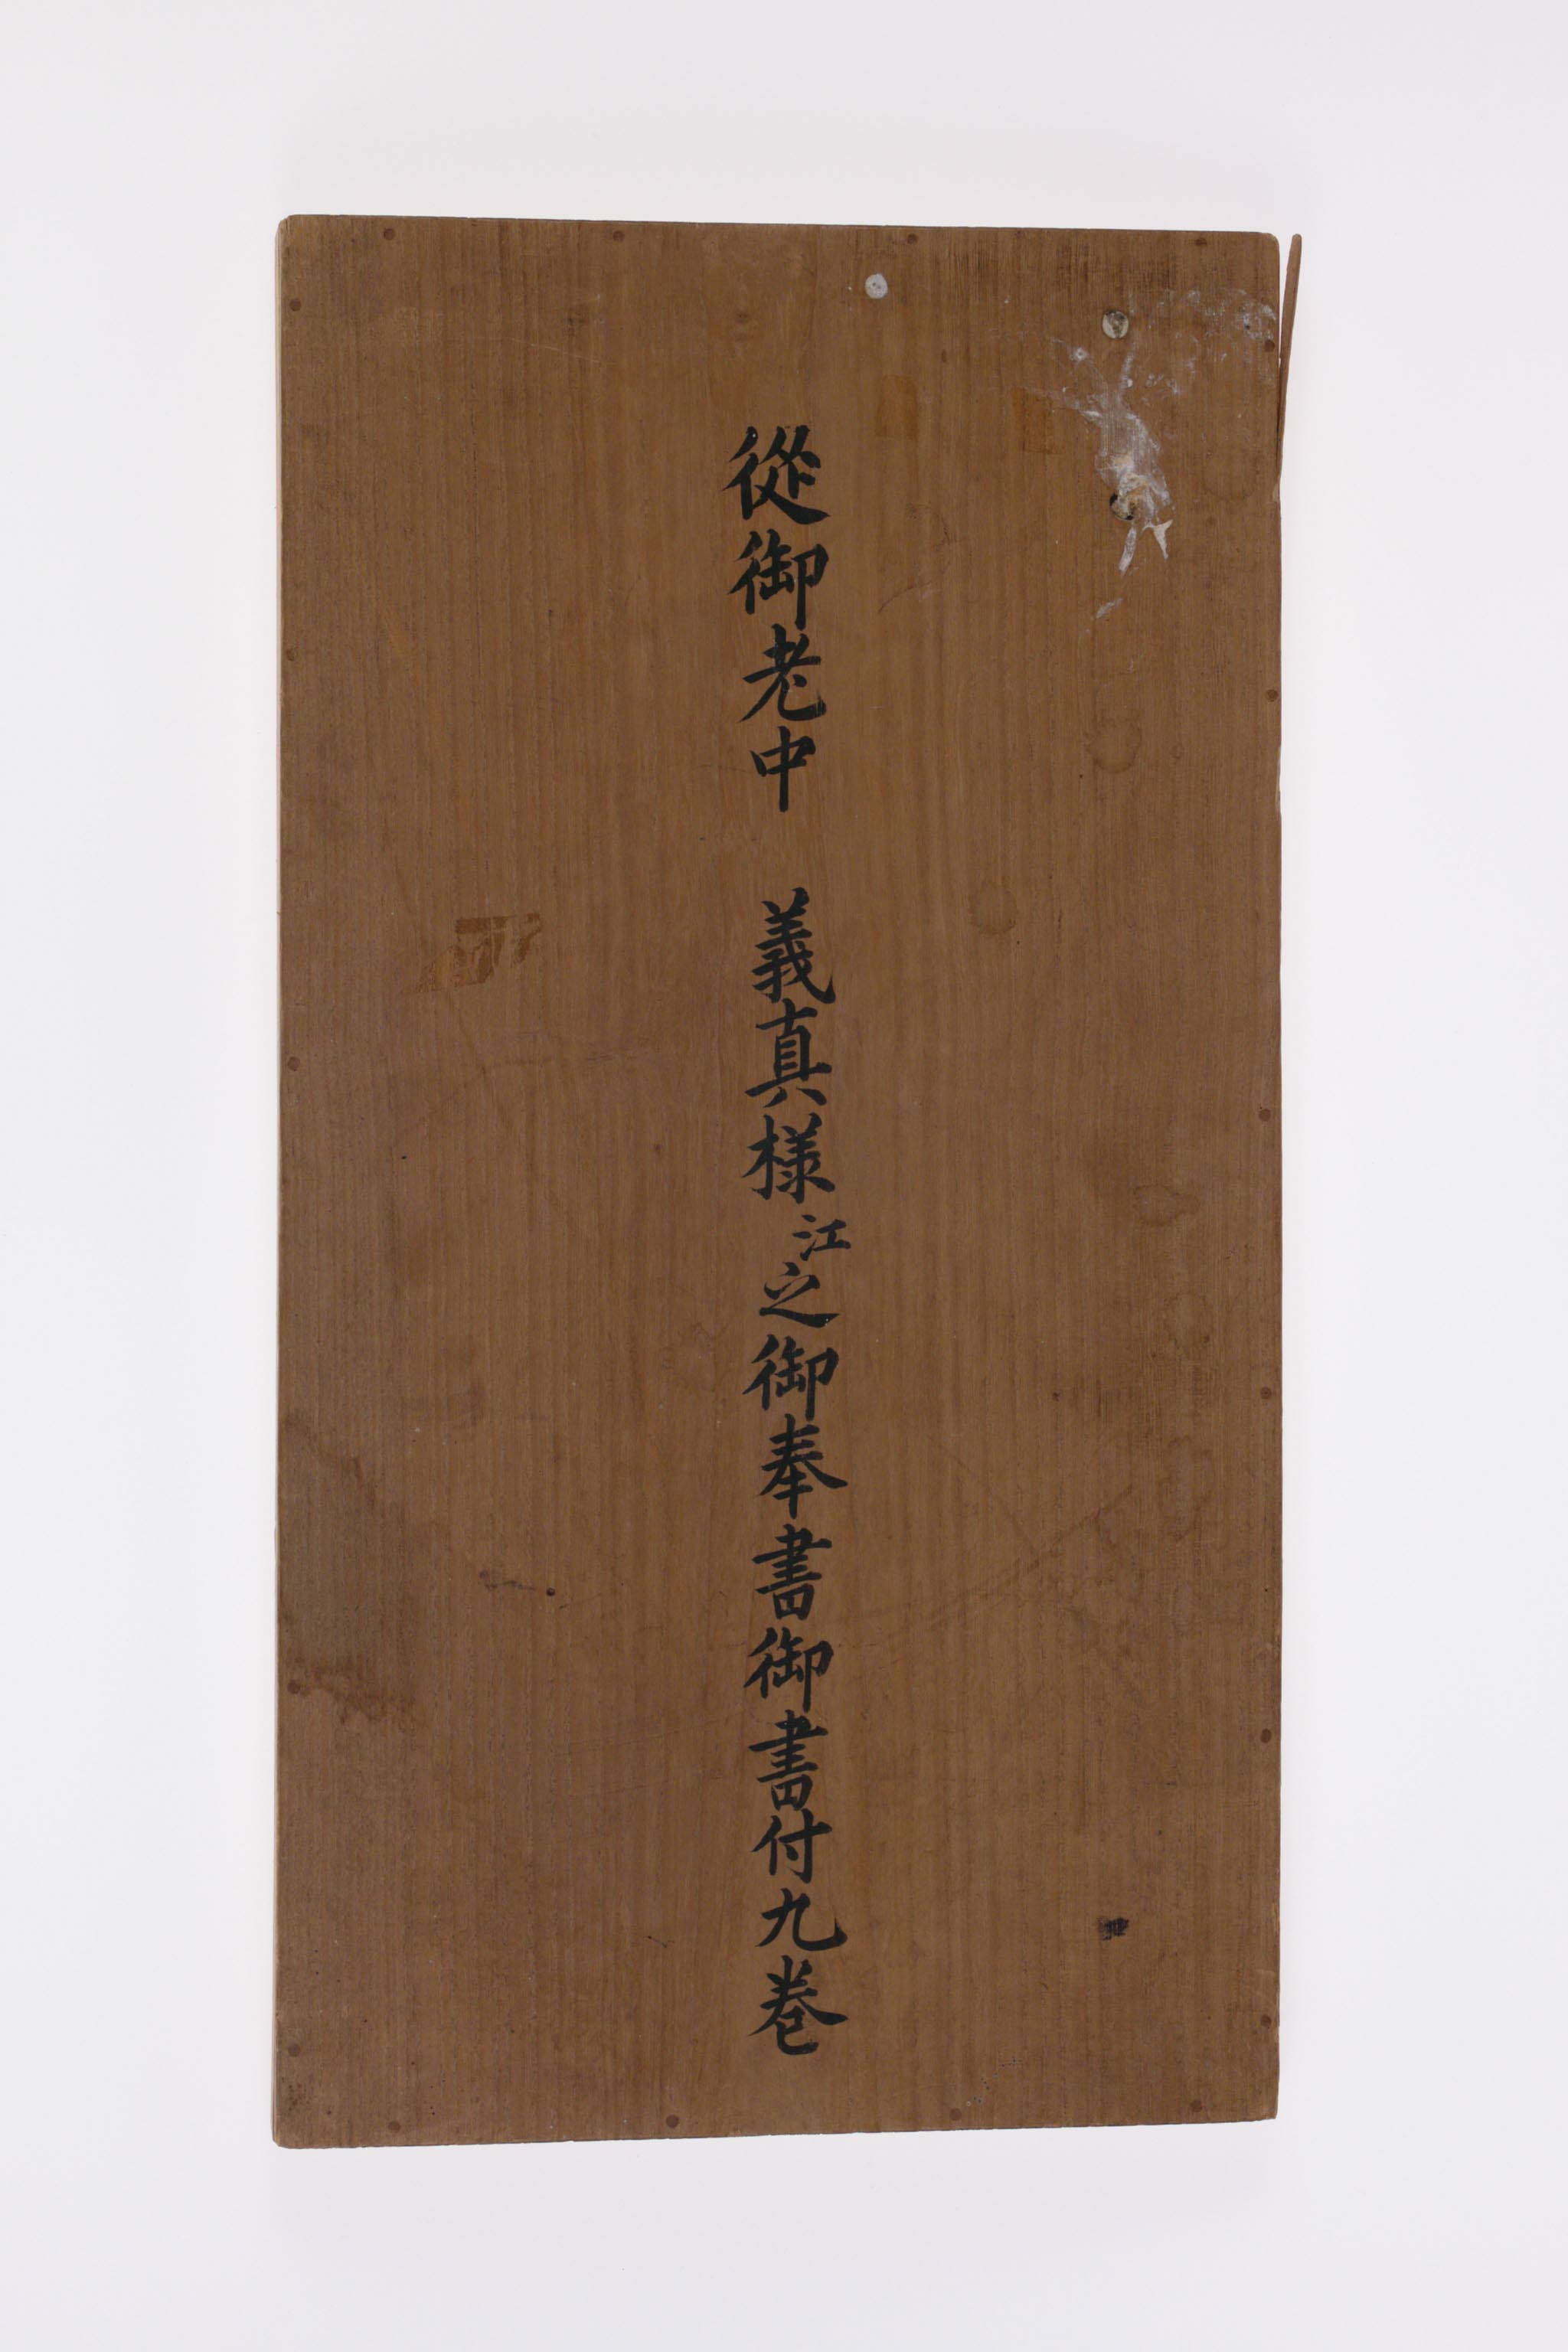 從御老中　義真様江之御奉書御書付九巻